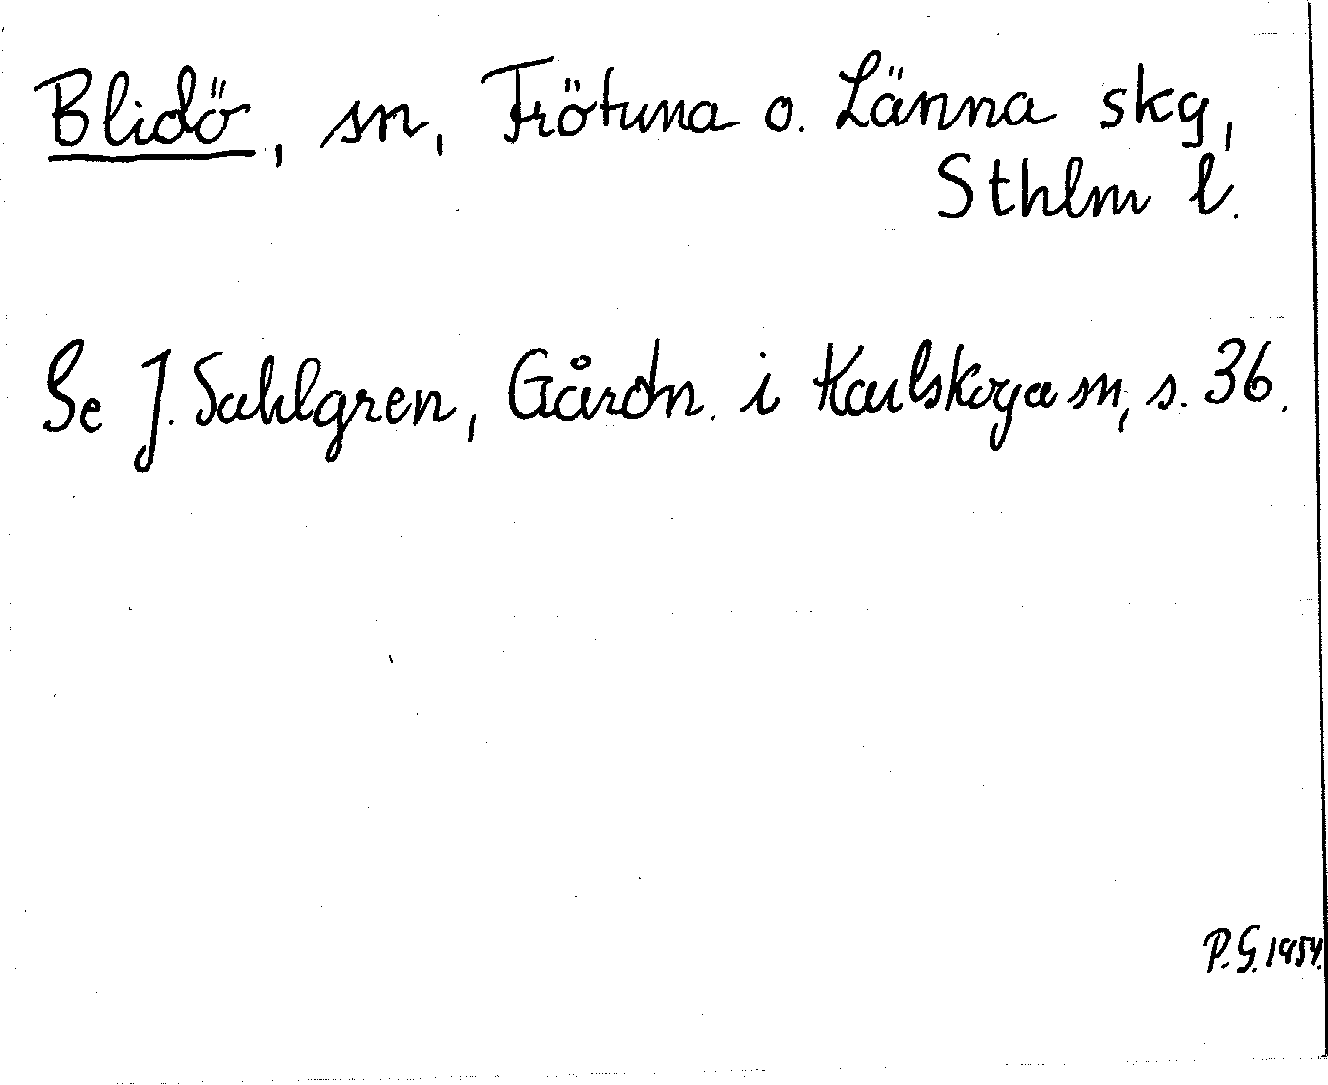 Blidö, sn, Frötuna o. Länna skg,
Sthlm l.
Se J. Sahlgren, Gårdn. i Karlskoga sn, s. 36.
P.G. 1954.